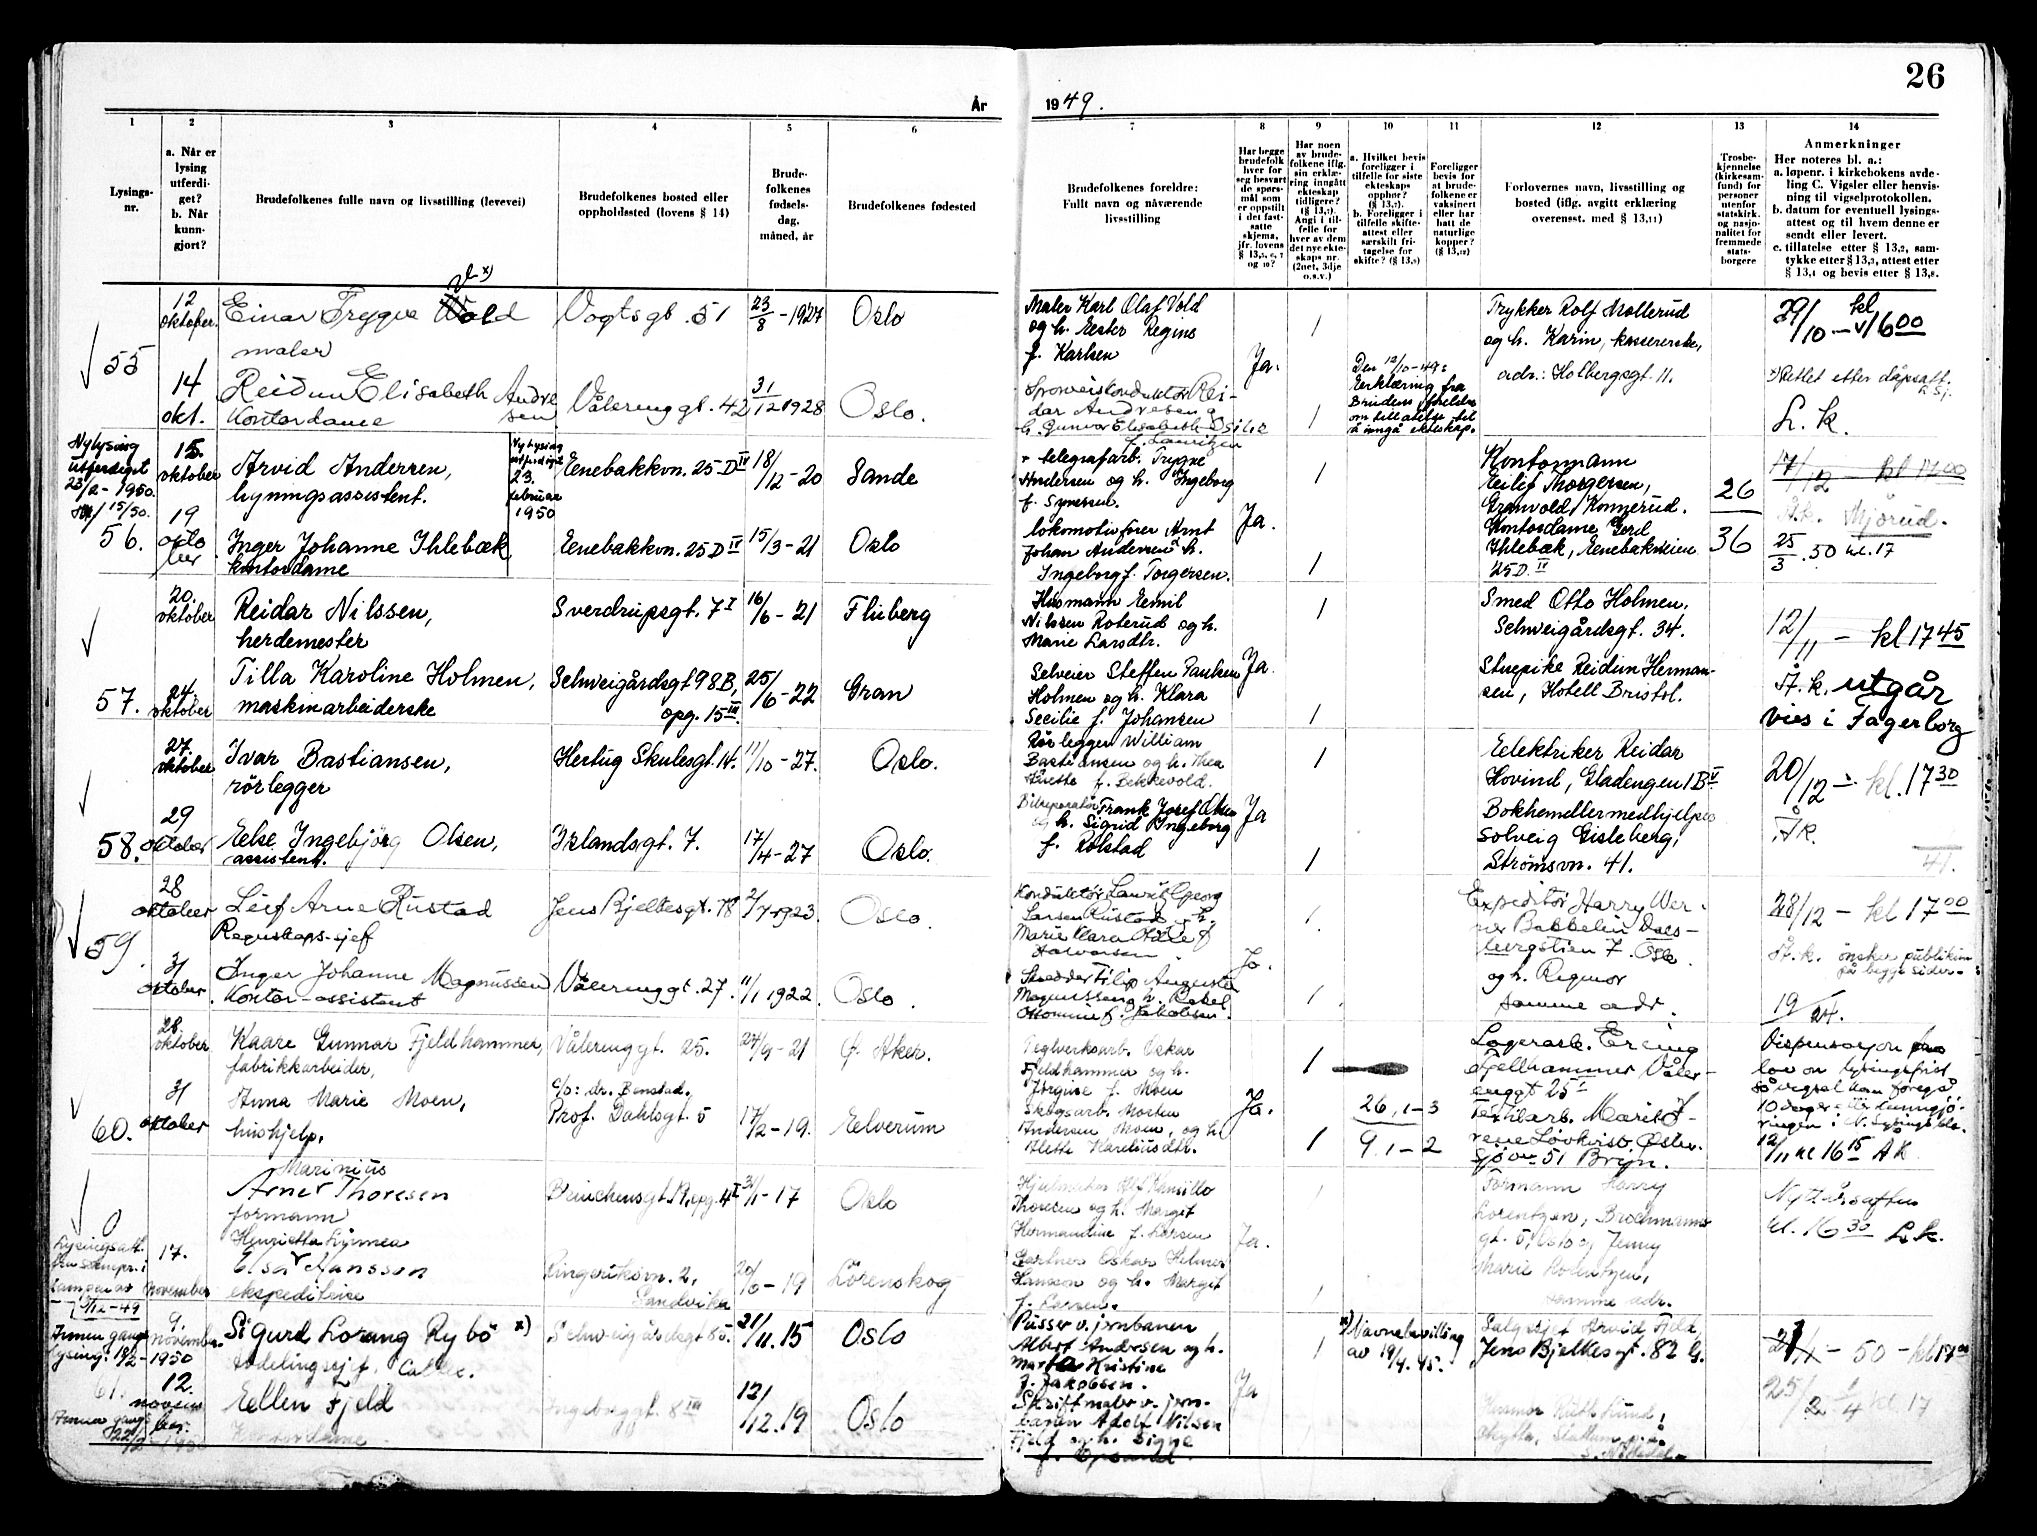 26
År
1949.
1 2 3 4 5 6 7 8 9 10 11 12 13 14
Lysings-
nr.
a. Når er
lysing
utferdi-
get?
b. Når
kunn-
gjort?
Brudefolkenes fulle navn og livsstilling (levevei)
Brudefolkenes bosted eller
oppholdssted (lovens § 14)
Brude-
folkenes
fødsels-
dag,
måned, år
Brudefolkenes fødested
Brudefolkenes foreldre:
Fullt navn og nåværende
livsstilling
Har begge
brudefolk
hver for
seg besvart
de spørs-
mål som
er oppstilt
i det fast-
satte
skjema,
jfr. lovens
§ 13,5, 6, 7
og 10?
Har noen
av brude-
folkene iflg.
sin erklæ-
ring inngått
ekteskap
tidligere?
(§ 13,7)
Angi i til-
felle for
hver av dem
det nye ekte-
skaps nr.
(2net, 3dje
o.s.v.)
a. Hvilket bevis
foreligger i
tilfelle for siste
ekteskaps
opphør?
(§ 13,7)
b. Foreligger i
tilfelle skifte-
attest eller
særskilt fri-
tagelse for
skifte? (§ 13,9)
Foreligger
bevis for
at brude-
folkene er
vaksinert
eller har
hatt de
naturlige
kopper?
(§ 13,12)
Forlovernes navn, livsstilling og
bosted (iflg. avgitt erklæring
overensst. med § 13,11)
Trosbe-
kjennelse
(kirkesam-
fund) for
personer
utenfor
statskirk.
og nasjo-
nalitet for
fremmede
stats-
borgere
Anmerkninger
Her noteres bl. a.:
a. løpenr. i kirkebokens avde-
ling C. Vigsler eller henvis-
ning til vigselprotokollen.
b. datum for eventuell lysings-
attest og til hvem denne er
sendt eller levert.
c. tillatelse etter § 13,2, sam-
tykke etter § 13,3, attest etter
§ 13,4 og bevis etter § 13,8.
55
12
oktober.
Einar Trygve Vold
maler
Vogtsgt. 51
23/8 - 1927
Oslo
Maler Karl Olaf Vold
og h. Ester Regine
f. Karlsen
1
Ja.
Trykker Rolf Mollerud
og h. Karin, kassererske,
adr.: Holbergsgt. 11.
29/10 - kl 16 00
Rettet etter dåpsatt.
14
okt.
Reidun Elisabeth Andre
sen
Kontordame
Vålerenggt. 42
31/12 1928
Oslo.
Sporveiskonduktør Rei-
dar Andresen
h. Gunvor Elisabeth
f. Lauritzen
1
Den 12/10-49:
Erklæring fra
Brudens foreldre
om tillatelse til
å inngå ekteskap.
L. k.
Ny lysing
utferdiget
23/2 - 1950.
15/50.
56.
15.
oktober
Arvid Andersen,
lysningsassistent.
Ny lysing
utferdiget
23.
februar
1950
Enebakkvn. 25 D IV
18/12 - 20
Sande
telegrafarb. Trygve
Andersen og h. Ingeborg
f. Syversen.
1
Ja.
Kontormann
Eilif Thorgersen,
Granvold, Konnerud.
26
17/12 kl 17 00
19
okto
ber
Inger Johanne Ihlebæk
kontordame
Enebakkvn. 25 D IV
15/3 - 21
Oslo
lokomotivfører Arnt
Johan Andersen h.
Ingeborg f. Torgersen.
1
Kontordame Gerd
Ihlebæk, Enebakveien
25 D. IV
36
25/3 . 50 kl. 17
57.
20.
oktober
Reidar Nilssen,
herdemester
Sverdrupsgt. 7 I
16/6 - 21
Fluberg
Husmann Emil
Nilssen Roterud og h.
Marie Larsdtr.
1
Ja.
Smed Otto Holmen,
Schweigårdsgt. 34.
12/11 - kl 17 45
24
oktober
Tilla Karoline Holmen,
maskinarbeiderske
Schweigårdsgt 98 B,
opg. 15 III.
25/6 - 22
Gran
Selveier Steffen Paulsen
Holmen og h. Klara
Secilie f. Johansen
1
Stuepike Reidun Herman-
sen, Hotell Bristol.
Å. k. utgår
vies i Fagerborg
58.
27.
oktober
Ivar Bastiansen,
rørlegger
Hertug Skulesgt. 14.
11/10 - 27.
Oslo.
Rørlegger William
Bastiansen og h. Thea
f. Bekkevold.
1
Ja
Elektriker Reidar
Hovind, Gladengen 1 B V
20/12 - kl. 17 30
29
oktober
Else Ingebjørg Olsen,
assistent.
Islandsgt. 7.
17/4 - 27
Oslo.
Bilreparatør Frank Josef Olsen
og h. Sigrid Ingeborg
f. Rolstad
1
Bokhandlermedhjelper
Solveig Gisleberg,
Strømsvn. 41.
Å k.
41.
59.
28
oktober
Leif Arne Rustad
Regnskaps-sjef
Jens Bjelkesgt. 78
2/7 1923.
Oslo.
Konduktør Laurits Georg
Larsen Rustad og h.
Marie Klara f.
Halvorsen
1
Ja.
Expeditør Harry Wer-
ner Bakkelin Dals-
bergstien 7. Oslo.
og h. Regmor
samme adr.
28/12 - kl 17 00
Å. k. ønsker publikum
på begge sider.
31
oktober.
Inger Johanne Magnussen
Kontor-assistent
Vålerenggt. 27.
11/1 1922.
Oslo.
Skredder Filip Augustin
Magnussen og h. Rakel
f. Jakobsen.
1
19/24.
60.
28.
oktober
Kaare Gunnar Fjeldhammer,
fabrikkarbeider,
Vålerenggt. 25.
27/9 - 21
Ø. Aker.
Teglverksarb. Oskar
Fjeldhammer og h.
Jørgine f. Moen
1
Ja.
Lagerarb. Erling
Fjellhammer Våler-
enggt 25 I
Dispensasjon fra
lov om lysingsfrist
så vigsel kan foregå
10 dager etter kunngjø-
ringen i N. Lysingsbla.
12/11 kl 16 15 Å k.
31
oktober
Anna Marie Moen,
hushjelp.
c/o: dr. Benstad.
Prof. Dahlsgt. 5
17/2 - 19.
Elverum
Skogsarb. Morten
Andersen Moen, og h.
Alette Kareliusdtr.
1
26, 1 - 3
9. 1 - 2
Tekstilarb. Marit I-
rene Lövkvist Østen-
sjøvn 51 Bryn.
0
Lysingsatt.
Marinius
Arne Thoresen
formann
31/1 - 17
Oslo
Thoresen og h. Margit
Hermandine f. Larsen
1
Ja.
Formann Harry
Lorentzen, Brochmanns
gt. 5, Oslo og Jenny
Marie Lorentzen,
samme adr.
Nyttårsaften
kl. 16 30 L. k.
17.
november
Henriette Linnea
Elsa Hansson
ekspeditrise
Ringeriksvn. 2,
Sandvika
20/9 - 19
Lörenskog
Gartner Oskar Hilmer
Hansson og h. Margit
f. Larsen.
1
Annen gangs
lysing: 18/2 - 1950
61.
9.
november.
Sigurd Lorang Rybö x)
avdelingssjef,
Schweigårdsgt 85.
21/11. 15
Oslo
Pusser v. jernbanen
Albert Andersen og h.
Marta Kristine
f. Jakobsen.
1
Ja
x) Navnebevilling
av 19/4. 45.
Salgssjef Arvid Fjeld
Jens Bjelkesgt. 82 b.
21/1 - 50 - kl 17 00
12.
novem
ber.
Ellen Fjeld
Kontordame
Ingeborggt. 8 III
12/12. 19
Oslo
Skriftmaler v. jern-
banen Adolf Nilsen
Fjeld og h. Signe
f. Opsand.
25/2 kl. 17